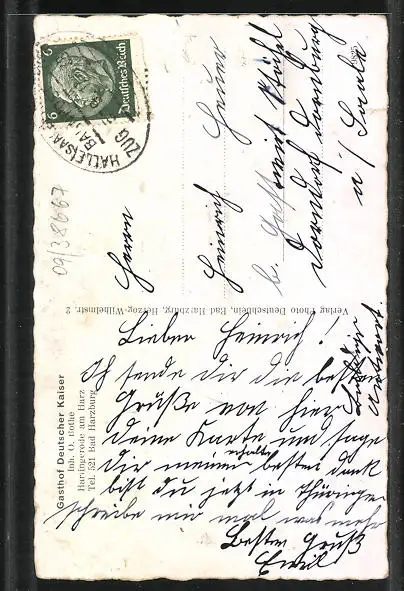 Deutsches Reich
6 6
HALLE(SAALE)
ZUG
09/38667
Herrn
Heinrich Heuer
b. Gastwirt Stahl
Dorndorf Dornburg
a/ Saale
Verlag Photo Deutschbein, Bad Harzburg, Herzog-Wilhelmstr. 2
Gasthof Deutscher Kaiser
Inh. O. Bothe
Harlingerode am Harz
Tel. 521 Bad Harzburg
Lieber Heinrich!
Ich sende dir die besten
Grüße von hier
deine Karte und sage
erhalten
dir meinen besten dank
bist du jetzt in Thüringen
schreibe mir mal was mehr
Besten Gruß
Emil
Antwort